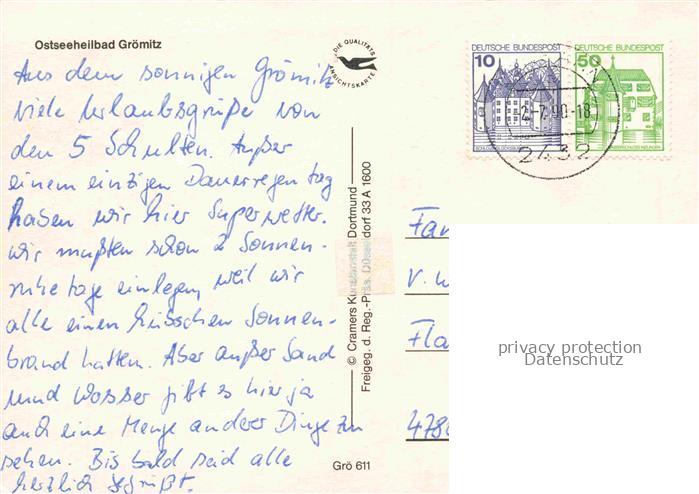 Ostseeheilbad Grömitz
Aus dem sonnigen Grömitz
viele Urlaubsgrüße von
den 5 Schulten. Außer
einem einzigen Dauerregentag
haben wir hier Superwetter.
Wir mußten schon 2 Sonnen-
ruhetage einlegen, weil wir
alle einen hübschen Sonnen-
brand hatten. Aber außer Sand
und Wasser gibt es hier ja
auch eine Menge anderer Dinge zu
sehen. Bis bald seid alle
herzlich gegrüßt.
DIE QUALITÄTS
ANSICHTSKARTE
© Cramers Kunstanstalt Dortmund
Freigeg. d. Reg.-Präs. Düsseldorf 33 A 1600
Grö 611
DEUTSCHE BUNDESPOST
10
SCHLOSS GLÜCKSBURG
DEUTSCHE BUNDESPOST
50
-2.-7.90-18
2432
Fam
v. W
Fla
478
privacy protection
Datenschutz